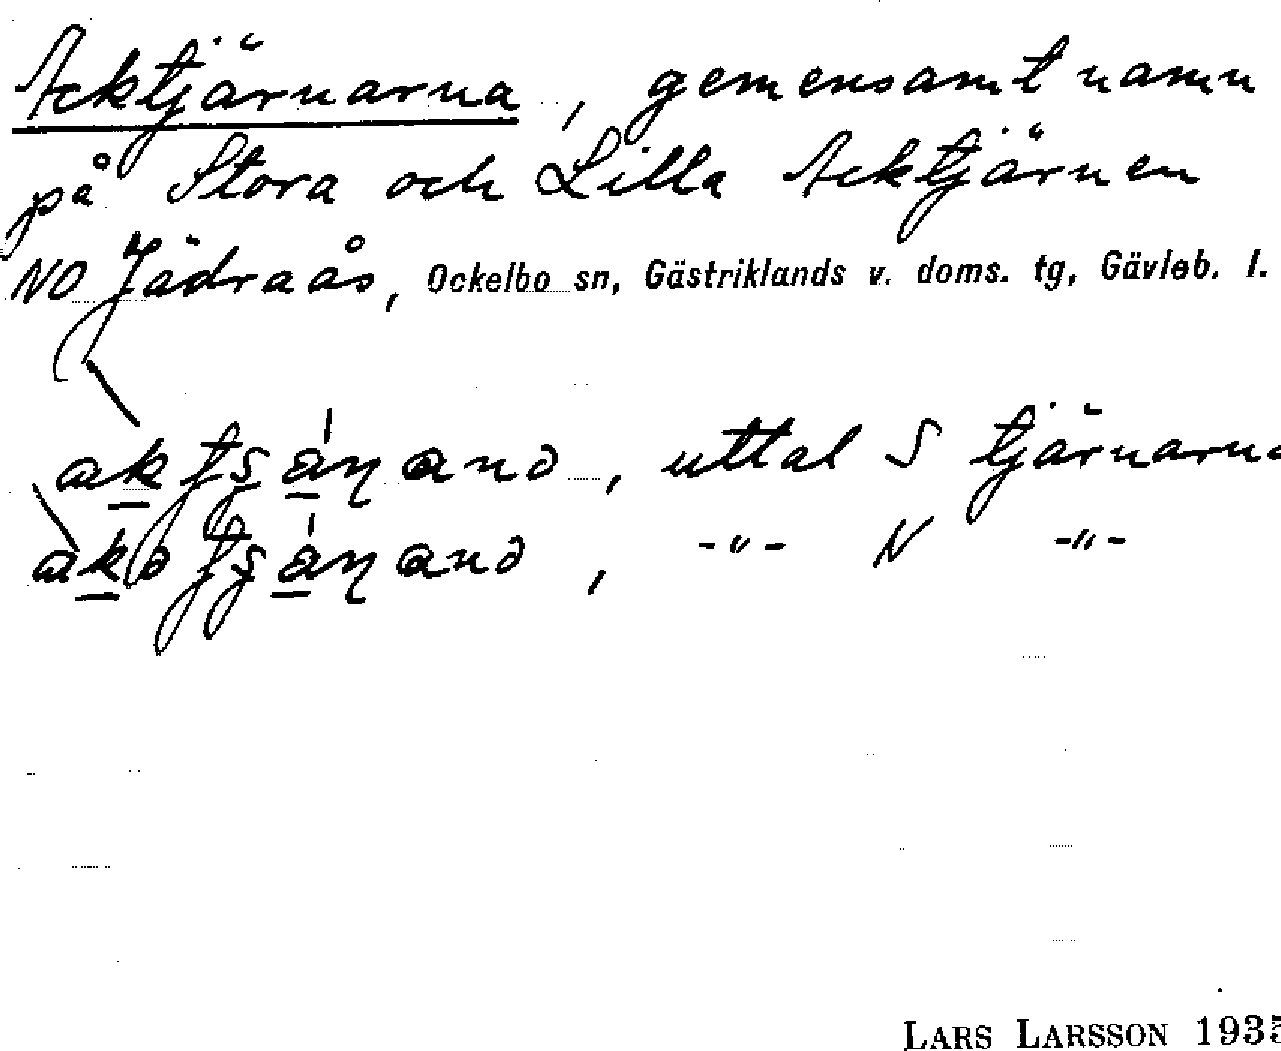 Acktjärnarna, gemensamt namn
på Stora och Lilla Acktjärnen
NO Jädraås, Ockelbo sn, Gästriklands v. doms. tg, Gävleb. l.
uttal S tjärnarna
-"- N -"-
LARS LARSSON 1935